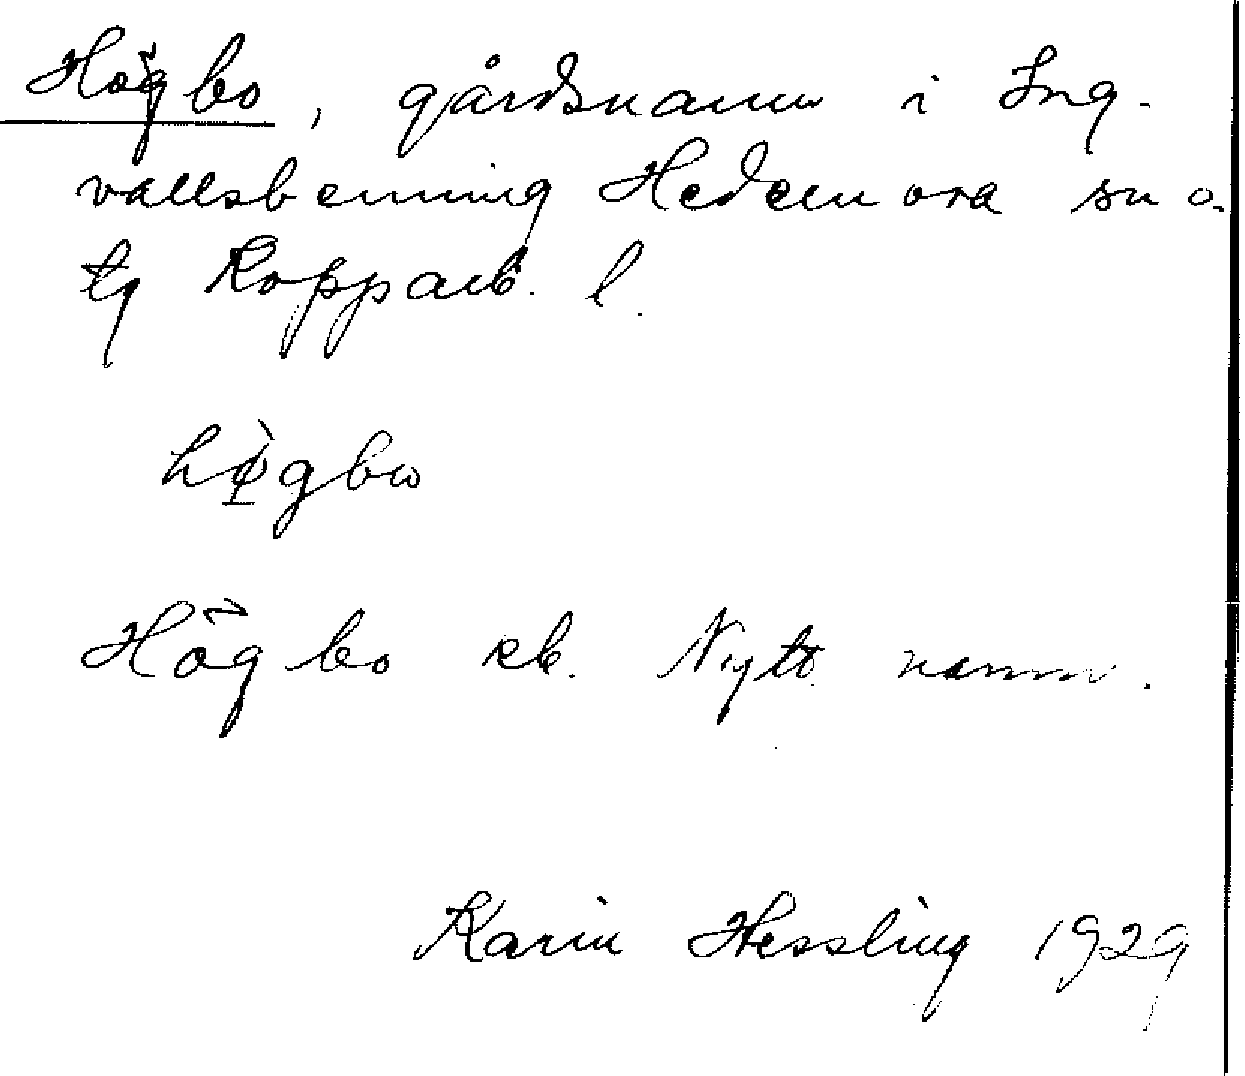 Högbo, gårdsnamn i Ing-
vallsbenning Hedemora sn o.
tg Kopparb. l.
hø̀gbω
Högbo rb. Nytt namn.
Karin Hessling 1929